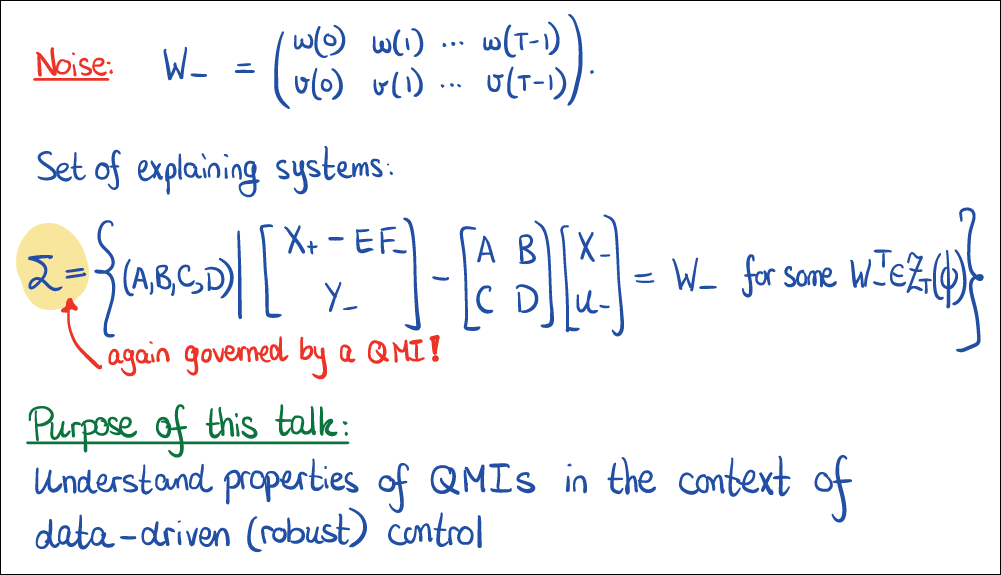 Noise: W_- = ( w(0) w(1) ... w(T-1)
v(0) v(1) ... v(T-1) ).
Set of explaining systems:
Σ = { (A,B,C,D) | [ X_+ - EF_-
Y_- ] - [ A B
C D ] [ X_-
U_- ] = W_- for some W_-^T ∈ Z_T(ϕ) }
again governed by a QMI!
Purpose of this talk:
Understand properties of QMIs in the context of
data-driven (robust) control